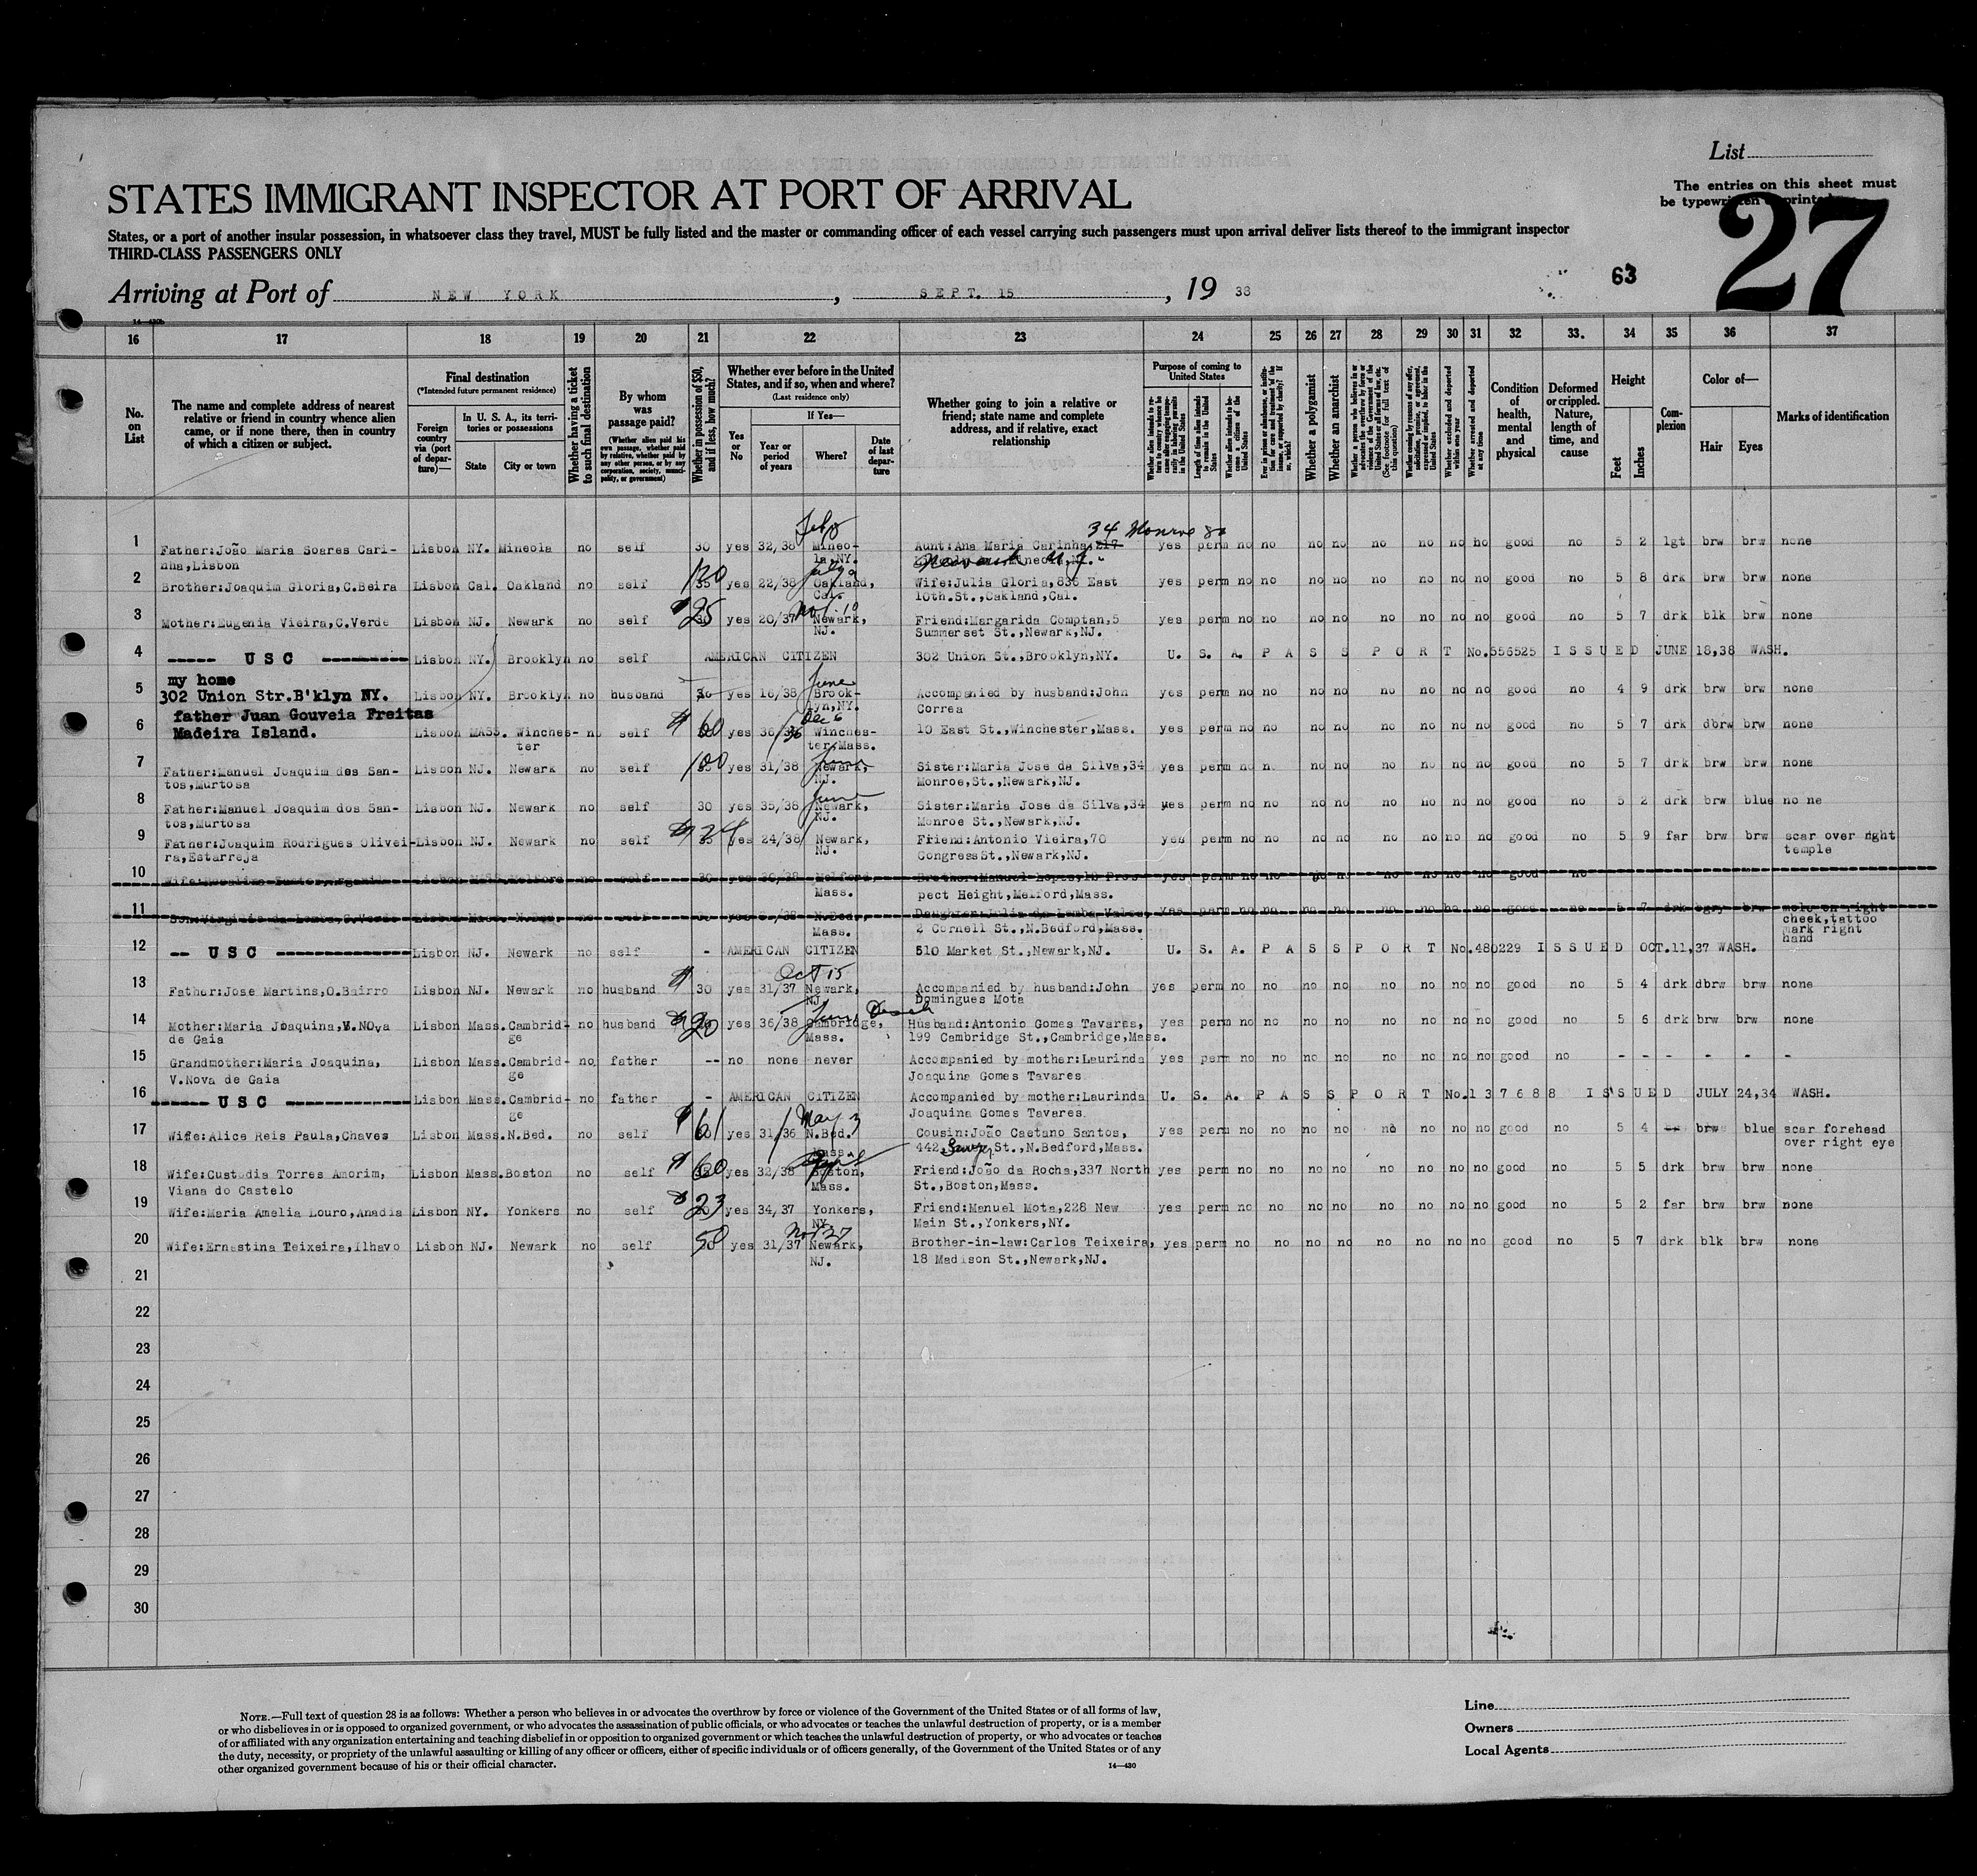 List
The entries on this sheet must
be typewritten or printed
27
STATES IMMIGRANT INSPECTOR AT PORT OF ARRIVAL
States, or a port of another insular possession, in whatsoever class they travel, MUST be fully listed and the master or commanding officer of each vessel carrying such passengers must upon arrival deliver lists thereof to the immigrant inspector
THIRD-CLASS PASSENGERS ONLY
63
Arriving at Port of NEW YORK, SEPT. 15, 19 38
16 17 18 19 20 21 22 23 24 25 26 27 28 29 30 31 32 33. 34 35 36 37
No. on List
The name and complete address of nearest relative or friend in country whence alien came, or if none there, then in country of which a citizen or subject.
Final destination
(*Intended future permanent residence)
Foreign country via (port of departure)—
In U. S. A., its territories or possessions
State City or town
Whether having a ticket to such final destination
By whom was passage paid?
(Whether alien paid his own passage, whether paid by relative, whether paid by any other person, or by any corporation, society, municipality, or government)
Whether in possession of $50, and if less, how much?
Whether ever before in the United States, and if so, when and where?
(Last residence only)
Yes or No
If Yes—
Year or period of years
Where?
Date of last departure
Whether going to join a relative or friend; state name and complete address, and if relative, exact relationship
Purpose of coming to United States
Whether alien intends to return to country whence he came after engaging temporarily in laboring pursuits in the United States
Length of time alien intends to remain in the United States
Whether alien intends to become a citizen of the United States
Ever in prison or almshouse, or institution for care and treatment of the insane, or supported by charity? If so, which?
Whether a polygamist
Whether an anarchist
Whether a person who believes in or advocates the overthrow by force or violence of the Government of the United States or all forms of law, etc. (See footnote for full text of this question)
Whether coming by reason of any offer, solicitation, promise, or agreement, expressed or implied, to labor in the United States
Whether excluded and deported within one year
Whether arrested and deported at any time
Condition of health, mental and physical
Deformed or crippled. Nature, length of time, and cause
Height
Feet Inches
Complexion
Color of—
Hair Eyes
Marks of identification
34 Monroe St
Feb
1 Father:João Maria Soares Cari- Lisbon NY. Mineola no self 30 yes 32/38 Mineo- Aunt:Ana Maria Carinha, 217 yes perm no no no no no no no no good no 5 2 lgt brw brw none
nha,Lisbon la,NY. Newark N.J.
July
2 Brother:Joaquim Gloria,C.Beira Lisbon Cal. Oakland no self 130 yes 22/38 Oakland, Wife:Julia Gloria,836 East yes perm no no no no no no no no good no 5 8 drk brw brw none
Cal. 10th.St.,Oakland,Cal.
3 Mother:Eugenia Vieira,C.Verde Lisbon NJ. Newark no self $25 yes 20/37 Nov. 10 Newark, Friend:Margarida Comptan,5 yes perm no no no no no no no no good no 5 7 drk blk brw none
NJ. Summerset St.,Newark,NJ.
4 ----- USC ----- Lisbon NY. Brooklyn no self AMERICAN CITIZEN 302 Union St.,Brooklyn,NY. U. S. A. PASSPORT No.556525 ISSUED JUNE 18,38 WASH.
my home
June
5 302 Union Str.B'klyn NY. Lisbon NY. Brooklyn no husband 30 yes 16/38 Brook- Accompanied by husband:John yes perm no no no no no no no no good no 4 9 drk brw brw none
lyn,NY. Correa
father Juan Gouveia Freitas
Dec 6
6 Madeira Island. Lisbon MASS. Winches- no self $60 yes 36/36 Winches- 10 East St.,Winchester,Mass. yes perm no no no no no no no no good no 5 7 drk dbrw brw none
ter ter,Mass.
7 Father:Manuel Joaquim dos San- Lisbon NJ. Newark no self 100 yes 31/38 June Newark, Sister:Maria Jose da Silva,34 yes perm no no no no no no no no good no 5 7 drk brw brw none
tos,Murtosa NJ. Monroe,St.,Newark,NJ.
June
8 Father:Manuel Joaquim dos San- Lisbon NJ. Newark no self 30 yes 35/38 Newark, Sister:Maria Jose da Silva,34 yes perm no no no no no no no no good no 5 2 drk brw blue no ne
tos,Murtosa NJ. Monroe St.,Newark,NJ.
9 Father:Joaquim Rodrigues Olivei- Lisbon NJ. Newark no self $24 yes 24/38 Newark, Friend:Antonio Vieira,70 yes perm no no no no no no no no good no 5 9 far brw brw scar over right
ra,Estarreja NJ. Congress St.,Newark,NJ. temple
10 Lisbon Mass. Melford no self 30 yes 30/38 Melford, Brother:Manuel Lopes,18 Pros- yes perm no no no no no no no no good no
Mass. pect Height,Melford,Mass.
11 Lisbon Mass. N.Bed. no self yes N.Bed. yes perm no no no no no no no no good no 5 7 drk brw mole on right
Mass. 2 Cornell St.,N.Bedford,Mass. cheek,tattoo
mark right
hand
12 -- USC ----- Lisbon NJ. Newark no self - AMERICAN CITIZEN 510 Market St.,Newark,NJ. U. S. A. PASSPORT No.480229 ISSUED OCT.11,37 WASH.
Oct 15
13 Father:Jose Martins,O.Bairro Lisbon NJ. Newark no husband $ 30 yes 31/37 Newark, Accompanied by husband:John yes perm no no no no no no no no good no 5 4 drk dbrw brw none
NJ. Domingues Mota
June
14 Mother:Maria Joaquina,V.NOva Lisbon Mass. Cambrid- no husband $20 yes 36/38 Cambridge, Husband:Antonio Gomes Tavares, yes perm no no no no no no no no good no 5 6 drk brw brw none
de Gaia ge Mass. 199 Cambridge St.,Cambridge,Mass.
15 Grandmother:Maria Joaquina, Lisbon Mass. Cambrid- no father -- no none never Accompanied by mother:Laurinda yes perm no no no no no no no no good no - - - - - -
V.Nova de Gaia ge Joaquina Gomes Tavares
16 ----- USC ----- Lisbon Mass. Cambrid- no father - AMERICAN CITIZEN Accompanied by mother:Laurinda U. S. A. PASSPORT No.137688 ISSUED JULY 24,34 WASH.
ge Joaquina Gomes Tavares
May 3
17 Wife:Alice Reis Paula,Chaves Lisbon Mass. N.Bed. no self $61 yes 31/36 N.Bed. Cousin:João Caetano Santos, yes perm no no no no no no no no good no 5 4 -- brw blue scar forehead
Mass. 442, St.,N.Bedford,Mass. over right eye
18 Wife:Custodia Torres Amorim, Lisbon Mass. Boston no self $60 yes 32/38 Boston, Friend:João da Rocha,337 North yes perm no no no no no no no no good no 5 5 drk brw brw none
Viana do Castelo Mass. St.,Boston,Mass.
19 Wife:Maria Amelia Louro,Anadia Lisbon NY. Yonkers no self $23 yes 34/37 Yonkers, Friend:Manuel Mota,228 New yes perm no no no no no no no no good no 5 2 far brw brw none
NY. Main St.,Yonkers,NY.
Nov 27
20 Wife:Ernestina Teixeira,Ilhavo Lisbon NJ. Newark no self 50 yes 31/37 Newark, Brother-in-law:Carlos Teixeira, yes perm no no no no no no no no good no 5 7 drk blk brw none
NJ. 18 Madison St.,Newark,NJ.
21
22
23
24
25
26
27
28
29
30
NOTE.—Full text of question 28 is as follows: Whether a person who believes in or advocates the overthrow by force or violence of the Government of the United States or of all forms of law,
or who disbelieves in or is opposed to organized government, or who advocates the assassination of public officials, or who advocates or teaches the unlawful destruction of property, or is a member
of or affiliated with any organization entertaining and teaching disbelief in or opposition to organized government or which teaches the unlawful destruction of property, or who advocates or teaches
the duty, necessity, or propriety of the unlawful assaulting or killing of any officer or officers, either of specific individuals or of officers generally, of the Government of the United States or of any
other organized government because of his or their official character.
14—430
Line
Owners
Local Agents